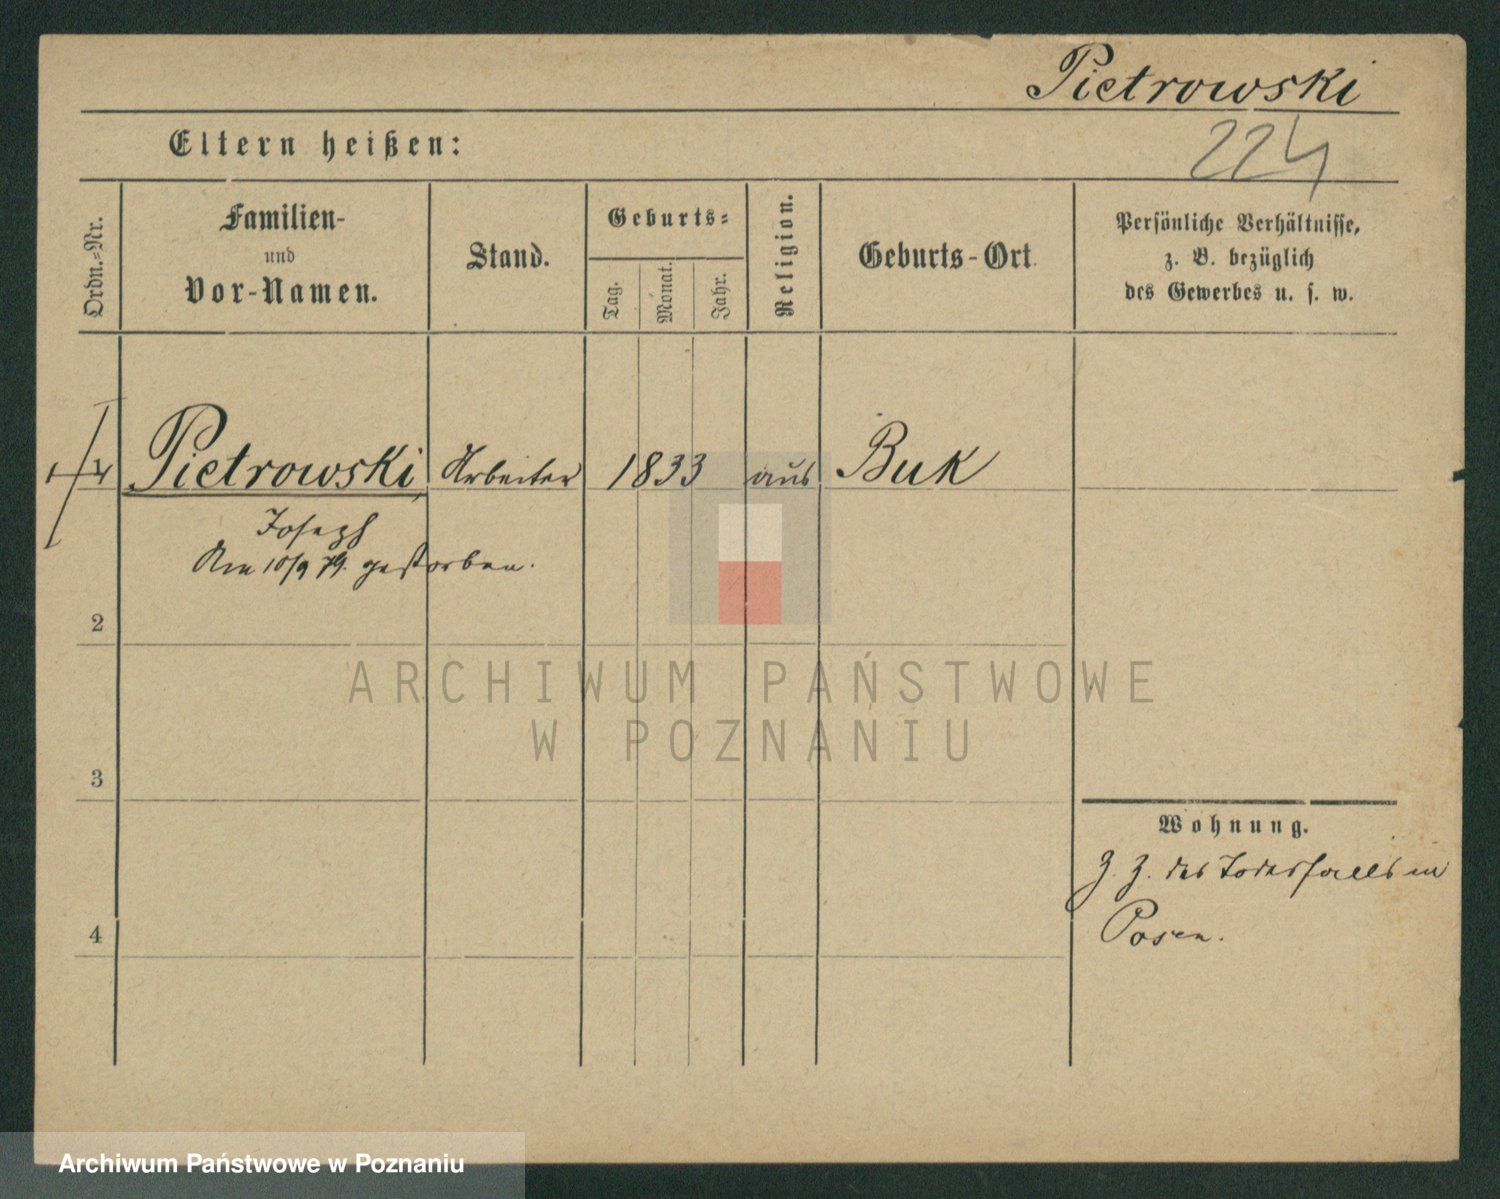 Pietrowski
224
Eltern heißen:
Ordn.-Nr.
Familien-
und
Vor-Namen.
Stand.
Geburts-
Tag.
Monat.
Jahr.
Religion.
Geburts-Ort.
Persönliche Verhältnisse,
z. B. bezüglich
des Gewerbes u. s. w.
Pietrowski, Arbeiter 1833 aus Buk
Joseph
Am 10/9 79. gestorben.
2
3
4
Wohnung.
z. Z. des Todesfalls in
Posen.
ARCHIWUM PAŃSTWOWE
W POZNANIU
Archiwum Państwowe w Poznaniu